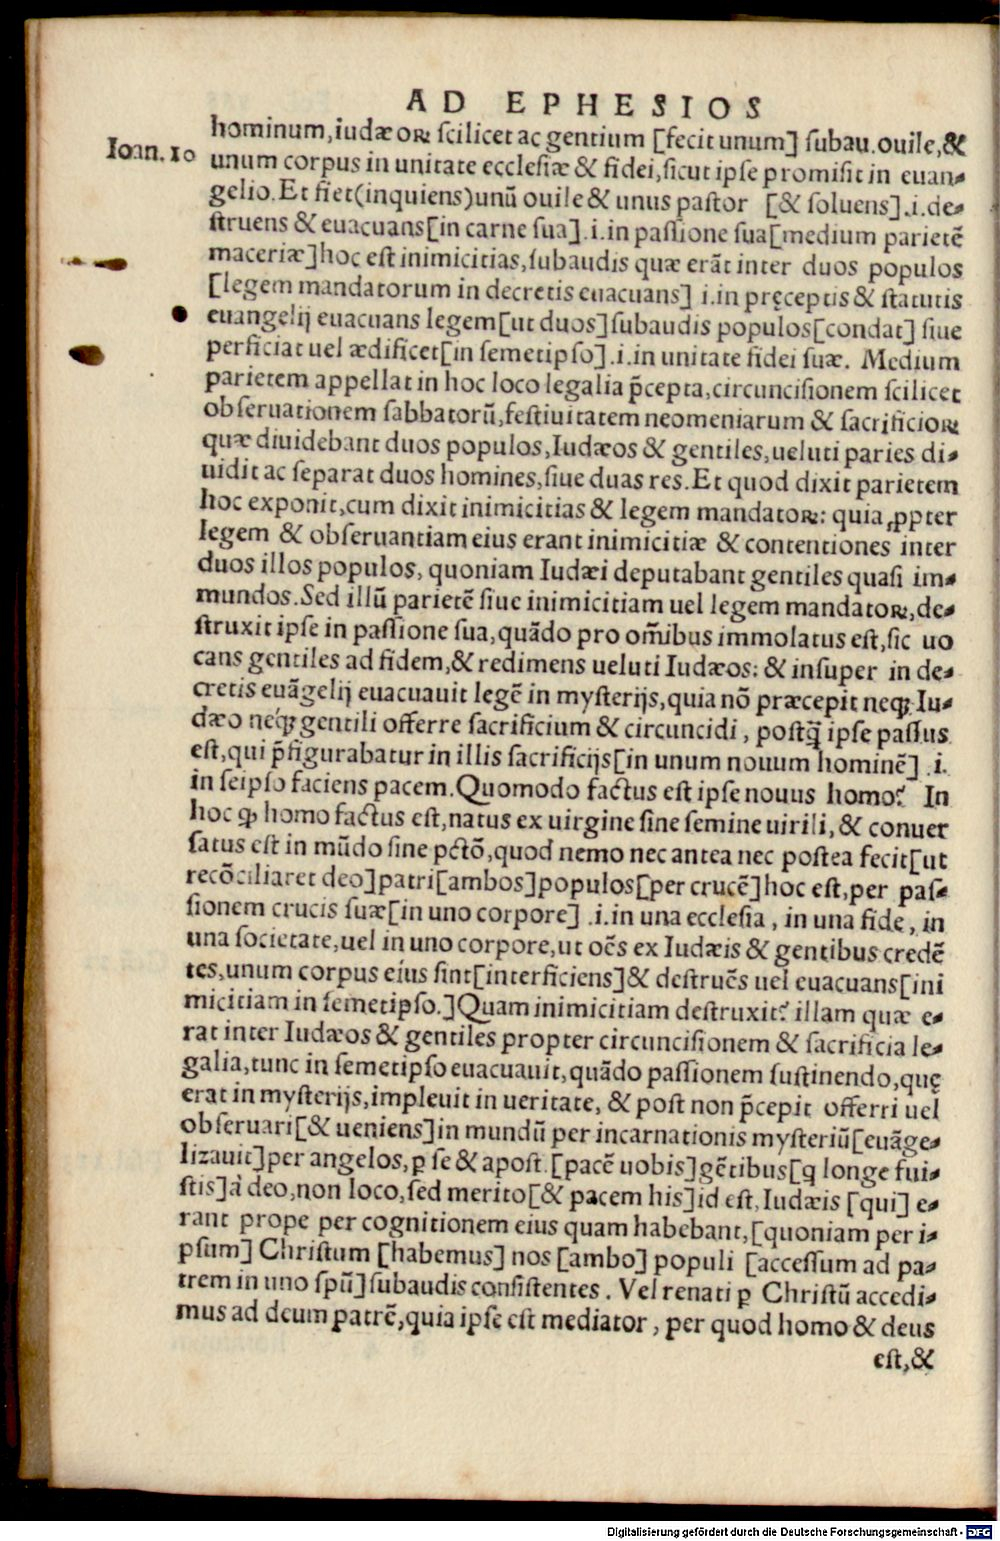 AD EPHESIOS
Ioan. 10
hominum, iudæoꝝ ſcilicet ac gentium [fecit unum] ſubau. ouile, &
unum corpus in unitate eccleſiæ & fidei, ſicut ipſe promiſit in euan-
gelio. Et fiet (inquiens) unũ ouile & unus paſtor [& ſoluens] .i. de-
ſtruens & euacuans [in carne ſua] .i. in paſſione ſua [medium parietẽ
maceriæ] hoc eſt inimicitias, ſubaudis quæ erãt inter duos populos
[legem mandatorum in decretis euacuans] i. in pręceptis & ſtatutis
euangelij euacuans legem [ut duos] ſubaudis populos [condat] ſiue
perficiat uel ædificet [in ſemetipſo] .i. in unitate fidei ſuæ. Medium
parietem appellat in hoc loco legalia p̃cepta, circunciſionem ſcilicet
obſeruationem ſabbatorũ, feſtiuitatem neomeniarum & ſacrificioꝝ
quæ diuidebant duos populos, Iudæos & gentiles, ueluti paries di-
uidit ac ſeparat duos homines, ſiue duas res. Et quod dixit parietem
hoc exponit, cum dixit inimicitias & legem mandatoꝝ: quia ꝓpter
legem & obſeruantiam eius erant inimicitiæ & contentiones inter
duos illos populos, quoniam Iudæi deputabant gentiles quaſi im-
mundos. Sed illũ parietẽ ſiue inimicitiam uel legem mandatoꝝ, de-
ſtruxit ipſe in paſſione ſua, quãdo pro om̃ibus immolatus eſt, ſic uo
cans gentiles ad fidem, & redimens ueluti Iudæos: & inſuper in de-
cretis euãgelij euacuauit legẽ in myſterijs, quia nõ præcepit neqꝫ Iu-
dæo neqꝫ gentili offerre ſacrificium & circuncidi, poſtq̃ ipſe paſſus
eſt, qui p̃figurabatur in illis ſacrificijs [in unum nouum hominẽ] .i.
in ſeipſo faciens pacem. Quomodo factus eſt ipſe nouus homo? In
hoc ꝙ homo factus eſt, natus ex uirgine ſine ſemine uirili, & conuer
ſatus eſt in mũdo ſine pctõ, quod nemo nec antea nec poſtea fecit [ut
recõciliaret deo] patri [ambos] populos [per crucẽ] hoc eſt, per paſ-
ſionem crucis ſuæ [in uno corpore] .i. in una eccleſia, in una fide, in
una ſocietate, uel in uno corpore, ut oẽs ex Iudæis & gentibus credẽ
tes, unum corpus eius ſint [interficiens] & deſtruẽs uel euacuans [ini
micitiam in ſemetipſo.] Quam inimicitiam deſtruxit? illam quæ e-
rat inter Iudæos & gentiles propter circunciſionem & ſacrificia le-
galia, tunc in ſemetipſo euacuauit, quãdo paſſionem ſuſtinendo, quę
erat in myſterijs, impleuit in ueritate, & poſt non p̃cepit offerri uel
obſeruari [& ueniens] in mundũ per incarnationis myſteriũ [euãge-
lizauit] per angelos, ꝑ ſe & apoſt. [pacẽ uobis] gẽtibus [q̃ longe fui-
ſtis] à deo, non loco, ſed merito [& pacem his] id eſt, Iudæis [qui] e-
rant prope per cognitionem eius quam habebant, [quoniam per i-
pſum] Chriſtum [habemus] nos [ambo] populi [acceſſum ad pa-
trem in uno ſpũ] ſubaudis conſiſtentes. Vel renati ꝑ Chriſtũ accedi-
mus ad deum patrẽ, quia ipſe eſt mediator, per quod homo & deus
eſt, &
Digitalisierung gefördert durch die Deutsche Forschungsgemeinschaft - DFG